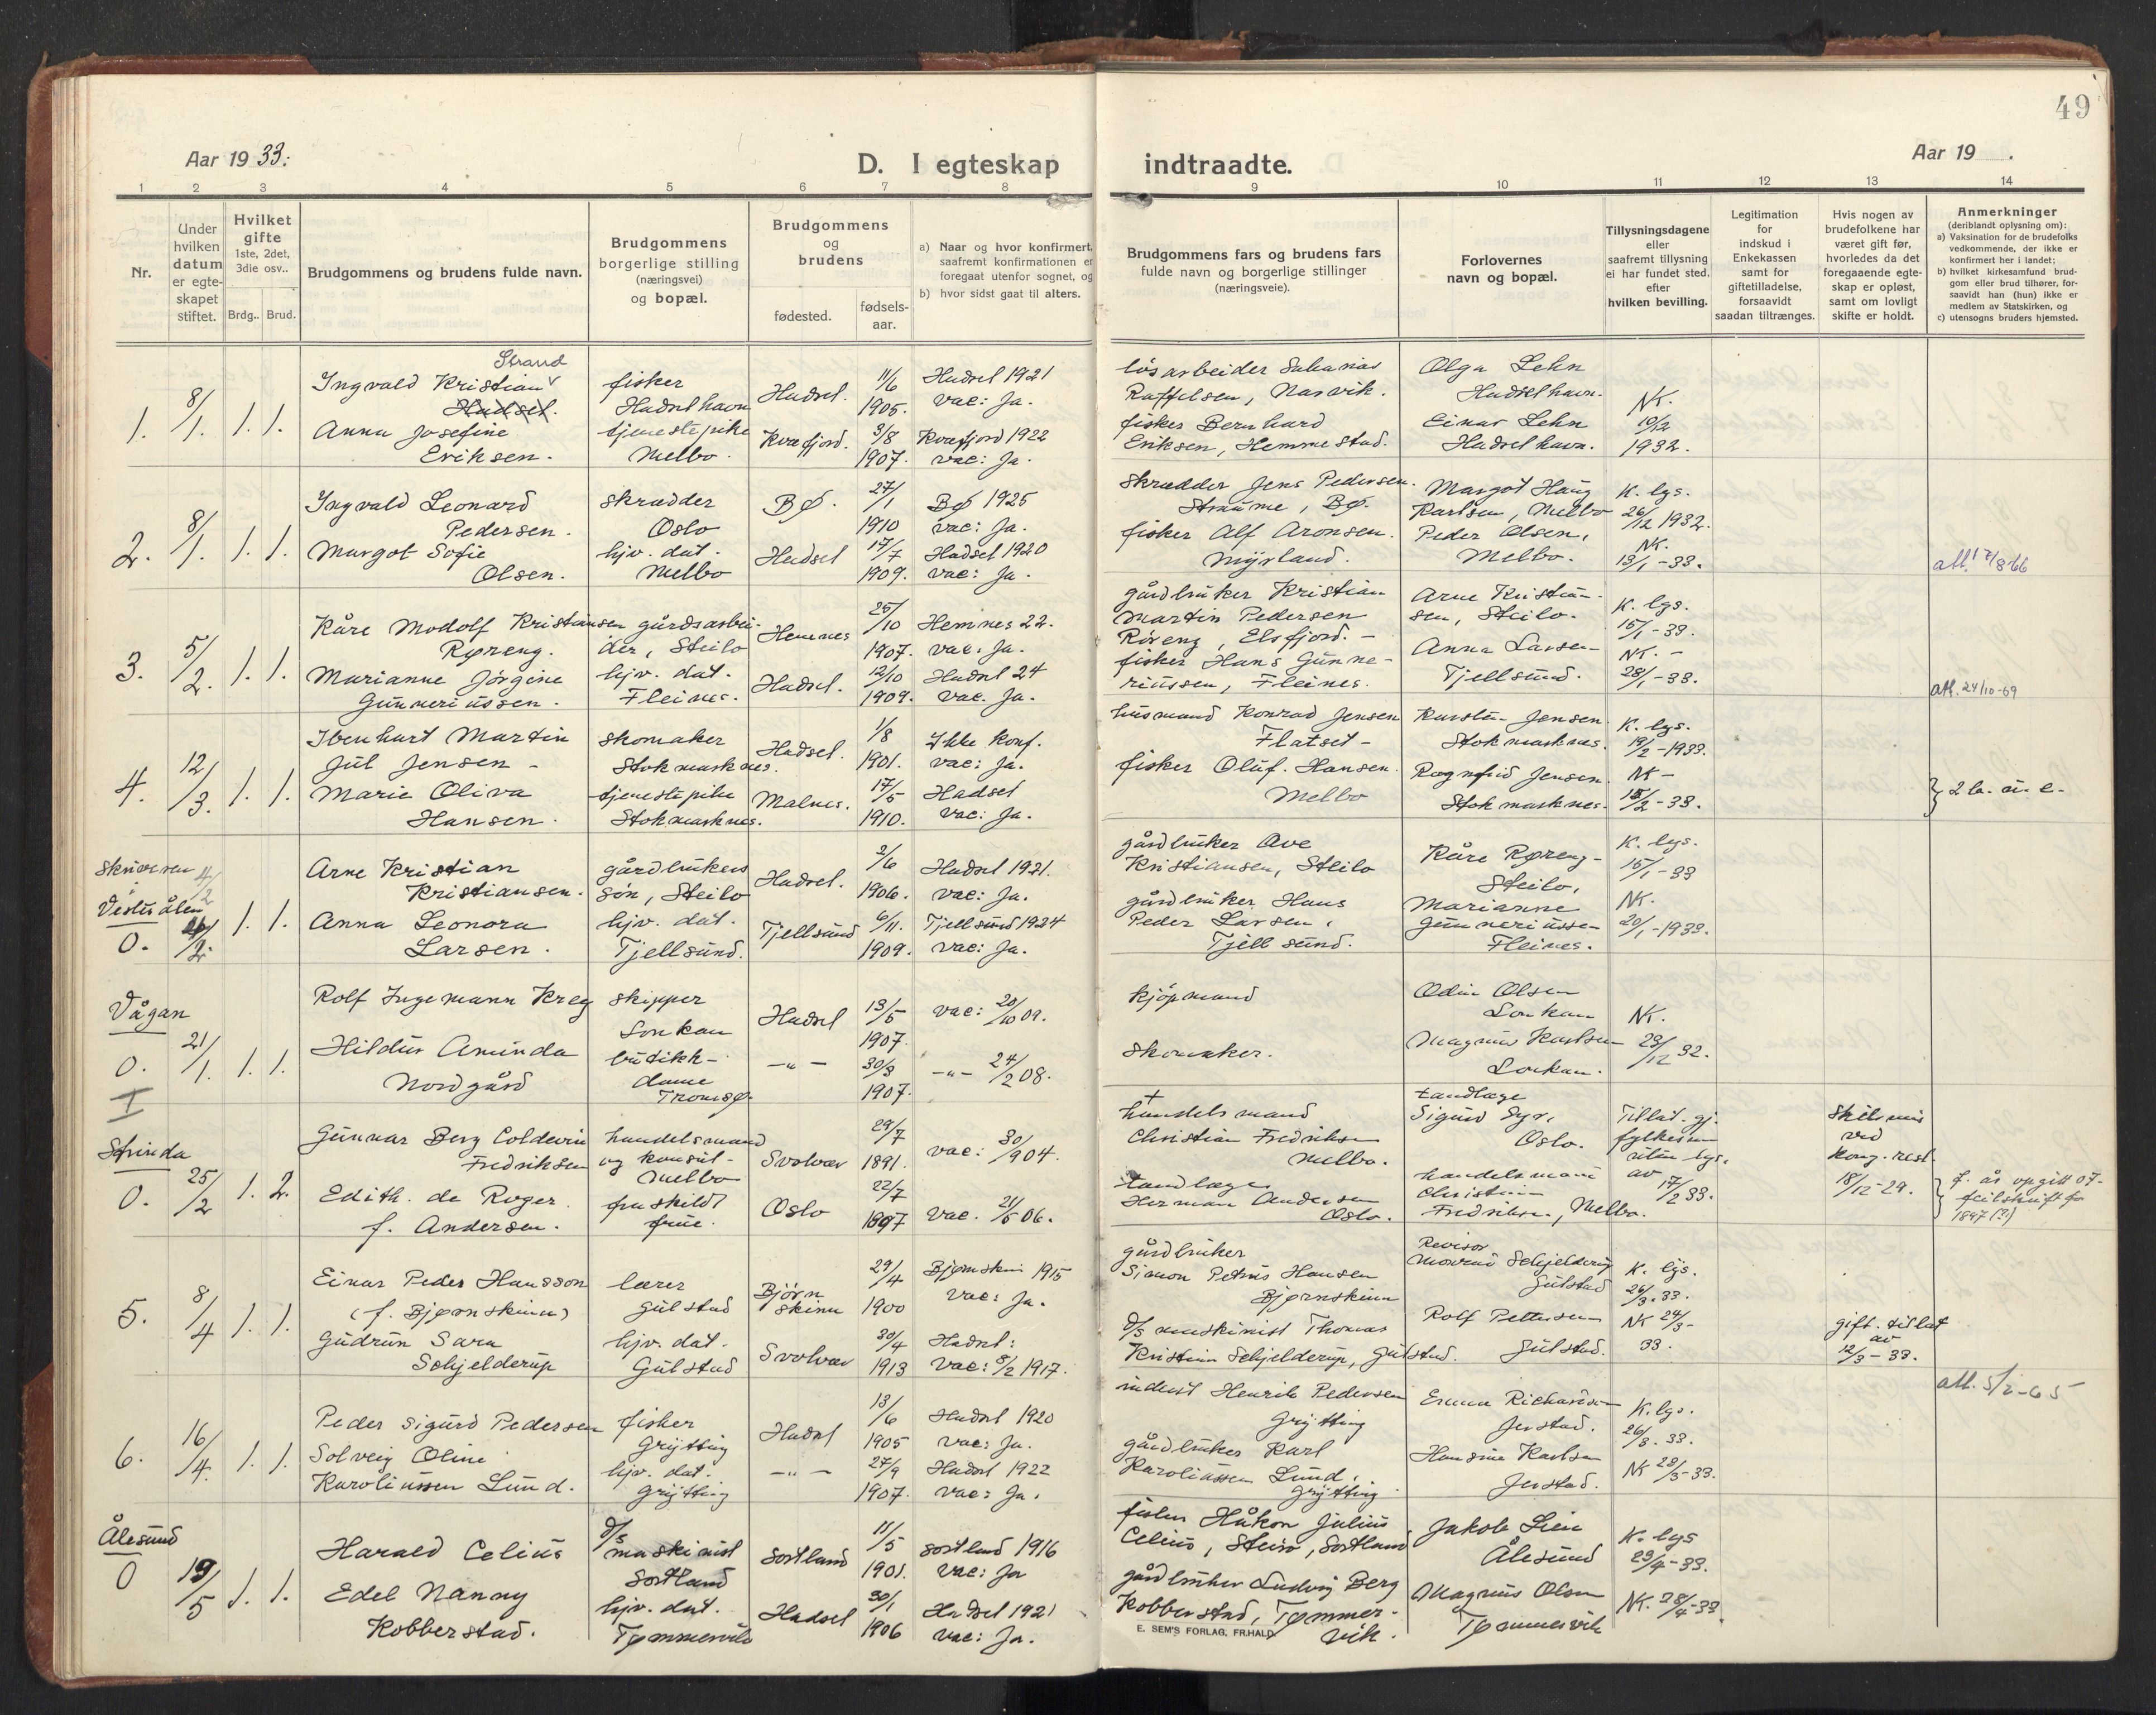 49
Aar 1933:
D. I egteskap indtraadte.
Aar 19 .
1 2 3 4 5 6 7 8 9 10 11 12 13 14
Nr.
Under hvilken datum er egte-skapet stiftet.
Hvilket gifte 1ste, 2det, 3die osv..
Brdg.. Brud.
Brudgommens og brudens fulde navn.
Brudgommens borgerlige stilling (næringsvei) og bopæl.
Brudgommens og brudens
fødested.
fødsels-aar.
a) Naar og hvor konfirmert, saafremt konfirmationen er foregaat utenfor sognet, og
b) hvor sidst gaat til alters.
Brudgommens fars og brudens fars fulde navn og borgerlige stillinger (næringsveie).
Forlovernes navn og bopæl.
Tillysningsdagene eller saafremt tillysning ei har fundet sted, efter hvilken bevilling.
Legitimation for indskud i Enkekassen samt for giftetilladelse, forsaavidt saadan tiltrænges.
Hvis nogen av brudefolkene har været gift før, hvorledes da det foregaaende egte-skap er opløst, samt om lovligt skifte er holdt.
Anmerkninger (deriblandt oplysning om):
a) Vaksination for de brudefolks vedkommende, der ikke er konfirmert her i landet;
b) hvilket kirkesamfund brud-gom eller brud tilhører, for-saavidt han (hun) ikke er medlem av Statskirken, og
c) utensogns bruders hjemsted.
1. 8/1. 1. 1.
Strand
Ingvald Kristian
Hadsel.
Anna Josefine
Eriksen.
fisker
Hadselhavn
tjenestepike
Melbo.
Hadsel.
Kvæfjord.
11/6
1905.
3/8
1907.
Hadsel 1921
vac: Ja.
Kvæfjord 1922
vac: Ja.
løsarbeider
Raffelsen, Narvik.
fisker Bernhard
Eriksen, Hemmestad.
Olga Lehn
Hadselhavn.
Einar Lehn
Hadselhavn.
NK.
10/12
1932.
2. 8/1. 1. 1.
Ingvald Leonard
Pedersen.
Margot Sofie
Olsen.
skrædder
Oslo
hjv. dat.
Melbo
Bø.
Hadsel
27/1
1910
17/7
1909.
Bø 1925
vac: Ja.
Hadsel 1920
vac: Ja.
skrædder Jens Pedersen.
Straume, Bø.
fisker Alf Aronsen.
Myrland.
Margot Haug
Karlsen, Melbo
Peder Olsen,
Melbo.
K. lys.
26/12 1932.
NK.
13/1-33.
att. 17/8 66
3. 5/2. 1. 1.
Kåre Modolf Kristiansen
Røreng.
Marianne Jørgine
Gunneriussen.
gårdsarbei-
der, Steilo
hjv. dat.
Fleines.
Hemnes
Hadsel.
25/10
1907.
12/10
1909.
Hemnes 22.
vac. Ja.
Hadsel 24
vac. Ja.
gårdbruker Kristian
Martin Pedersen
Røreng, Elsfjord. -
fisker Hans Gunne-
riussen, Fleines.
Arne Kristian-
sen, Steilo.
Anna Larsen
Tjellsund.
K. lys.
15/1-33.
NK. -
28/1-33.
att. 24/10-69
4. 12/3. 1. 1.
Ibenhart Martin
Jul Jensen -
Marie Oliva
Hansen.
skomaker
Stokmarknes.
tjenestepike
Stokmarknes.
Hadsel.
Malnes.
1/8
1901.
17/5
1910.
Ikke konf.
vac: Ja.
Hadsel
vac: Ja.
husmand Konrad Jensen
Flatset -
fisker Oluf. Hansen.
Melbo
Karsten Jensen
Stokmarknes.
Ragnfrid Jensen.
Stokmarknes.
K. lys.
19/2-1933.
NK -
15/2-33.
} 2 b. u. e.
Skrivern
Vesterålen
0. 4/2. 1. 1.
Arne Kristian
Kristiansen.
Anna Leonora
Larsen.
gårdbrukers
søn, Steilo
hjv. dat.
Tjellsund.
Hadsel.
Tjellsund
2/6
1906.
6/11.
1909.
Hadsel 1921.
vac: Ja.
Tjellsund 1924
vac: Ja.
gårdbruker Ove
Kristiansen, Steilo
gårdbruker Hans
Peder Larsen.
Tjellsund.
Kåre Røreng
Steilo,
Marianne
Gunneriusse-
Fleines.
K. lys.
15/1-33
NK.
20/1-1933.
Vågan
0. 21/1. 1. 1.
Rolf Ingemann Kreg
Hildur Aminda
Nordgård
skipper
Lonkan
butikk-
dame
Tromsø.
Hadsel
-"-
13/5
1907.
30/3
1907.
vac: 20/10 09.
-"- 24/2 08.
kjøpmand
skomaker.
Odin Olsen
Lonkan
Magnus Karlsen
Lonkan.
NK.
23/12 32.
I
Strinda
0. 25/2 1. 2.
Gunnar Berg Coldevin
Fredriksen
Edith. de Roger
f. Andersen.
handelsmand
og konsul -
Melbo
fraskildt
frue.
Svolvær
Oslo
29/7
1891.
22/7
1897
vac: 30/9 04.
vac. 21/5 06.
+
handelsmand
Christian Fredriksen
Melbo.
tandlæge
Herman Andersen
Oslo.
tandlæge
Sigurd Syr,
Oslo.
handelsmand
Christian
Fredriksen, Melbo.
Tillat. gj.
fylkesm
uten lys.
av 17/2 33.
Skilsmis
ved
Kong. resl.
18/12-29.
} f. år opgitt 07-
feilskrift for
1897 (?)
5. 8/4 1. 1.
Einar Peder Hansson
(f. Bjørnskinn)
Gudrun Sara
Schjelderup
lærer
Gulstad
hjv. dat.
Gulstad
Bjørn
skinn
Svolvær
29/4
1900
30/4
1913
Bjørnskin 1915
vac: Ja.
Hadsel:
vac: 8/2 1917.
gårdbruker
Simon Petrus Hansen
Bjørnskinn
D/S maskinist Thomas
Kristian Schjelderup, Gulstad.
Revisor
Schjelderup
Gulstad
Rolf Pettersen
Gulstad.
K. lys.
26/3. 33.
NK 24/3-
33.
gift. tillat
av
12/3-33.
att. 5/2-65
6. 16/4. 1. 1.
Peder Sigurd Pedersen
Solveig Oline
Karoliussen Lund.
fisker
Grytting
hjv. dat.
Grytting
Hadsel
-"-
13/6
1905
27/9
1907.
Hadsel 1920
vac: Ja.
Hadsel 1922
vac: Ja.
inderst Henrik Pedersen
Grytting
gårdbruker Karl
Karoliussen Lund.
Grytting
Emma Richardsen
Jerstad.
Hansine Karlsen
Jerstad.
K. lys.
26/3. 33.
NK 28/3-33.
Ålesund
0 19/5 1. 1.
Harald Celius
Edel Nanny
Kobberstad.
D/S
maskinist
Sortland
hjv. dat.
Tømmervik
Sortland
Hadsel
11/5
1901.
30/1
1906
Sortland 1916
vac: Ja
Hadsel 1921
vac: Ja.
fisker Håkon Julius
Celius, Steiro, Sortland
gårdbruker Ludvig Berg
Kobberstad, Tømmer-
vik.
Jakob Lien
Ålesund
Magnus Olsen
Tømmervik
K. lys
23/4-33.
NK. 28/4-33
E. SEM'S FORLAG, FR.HALD